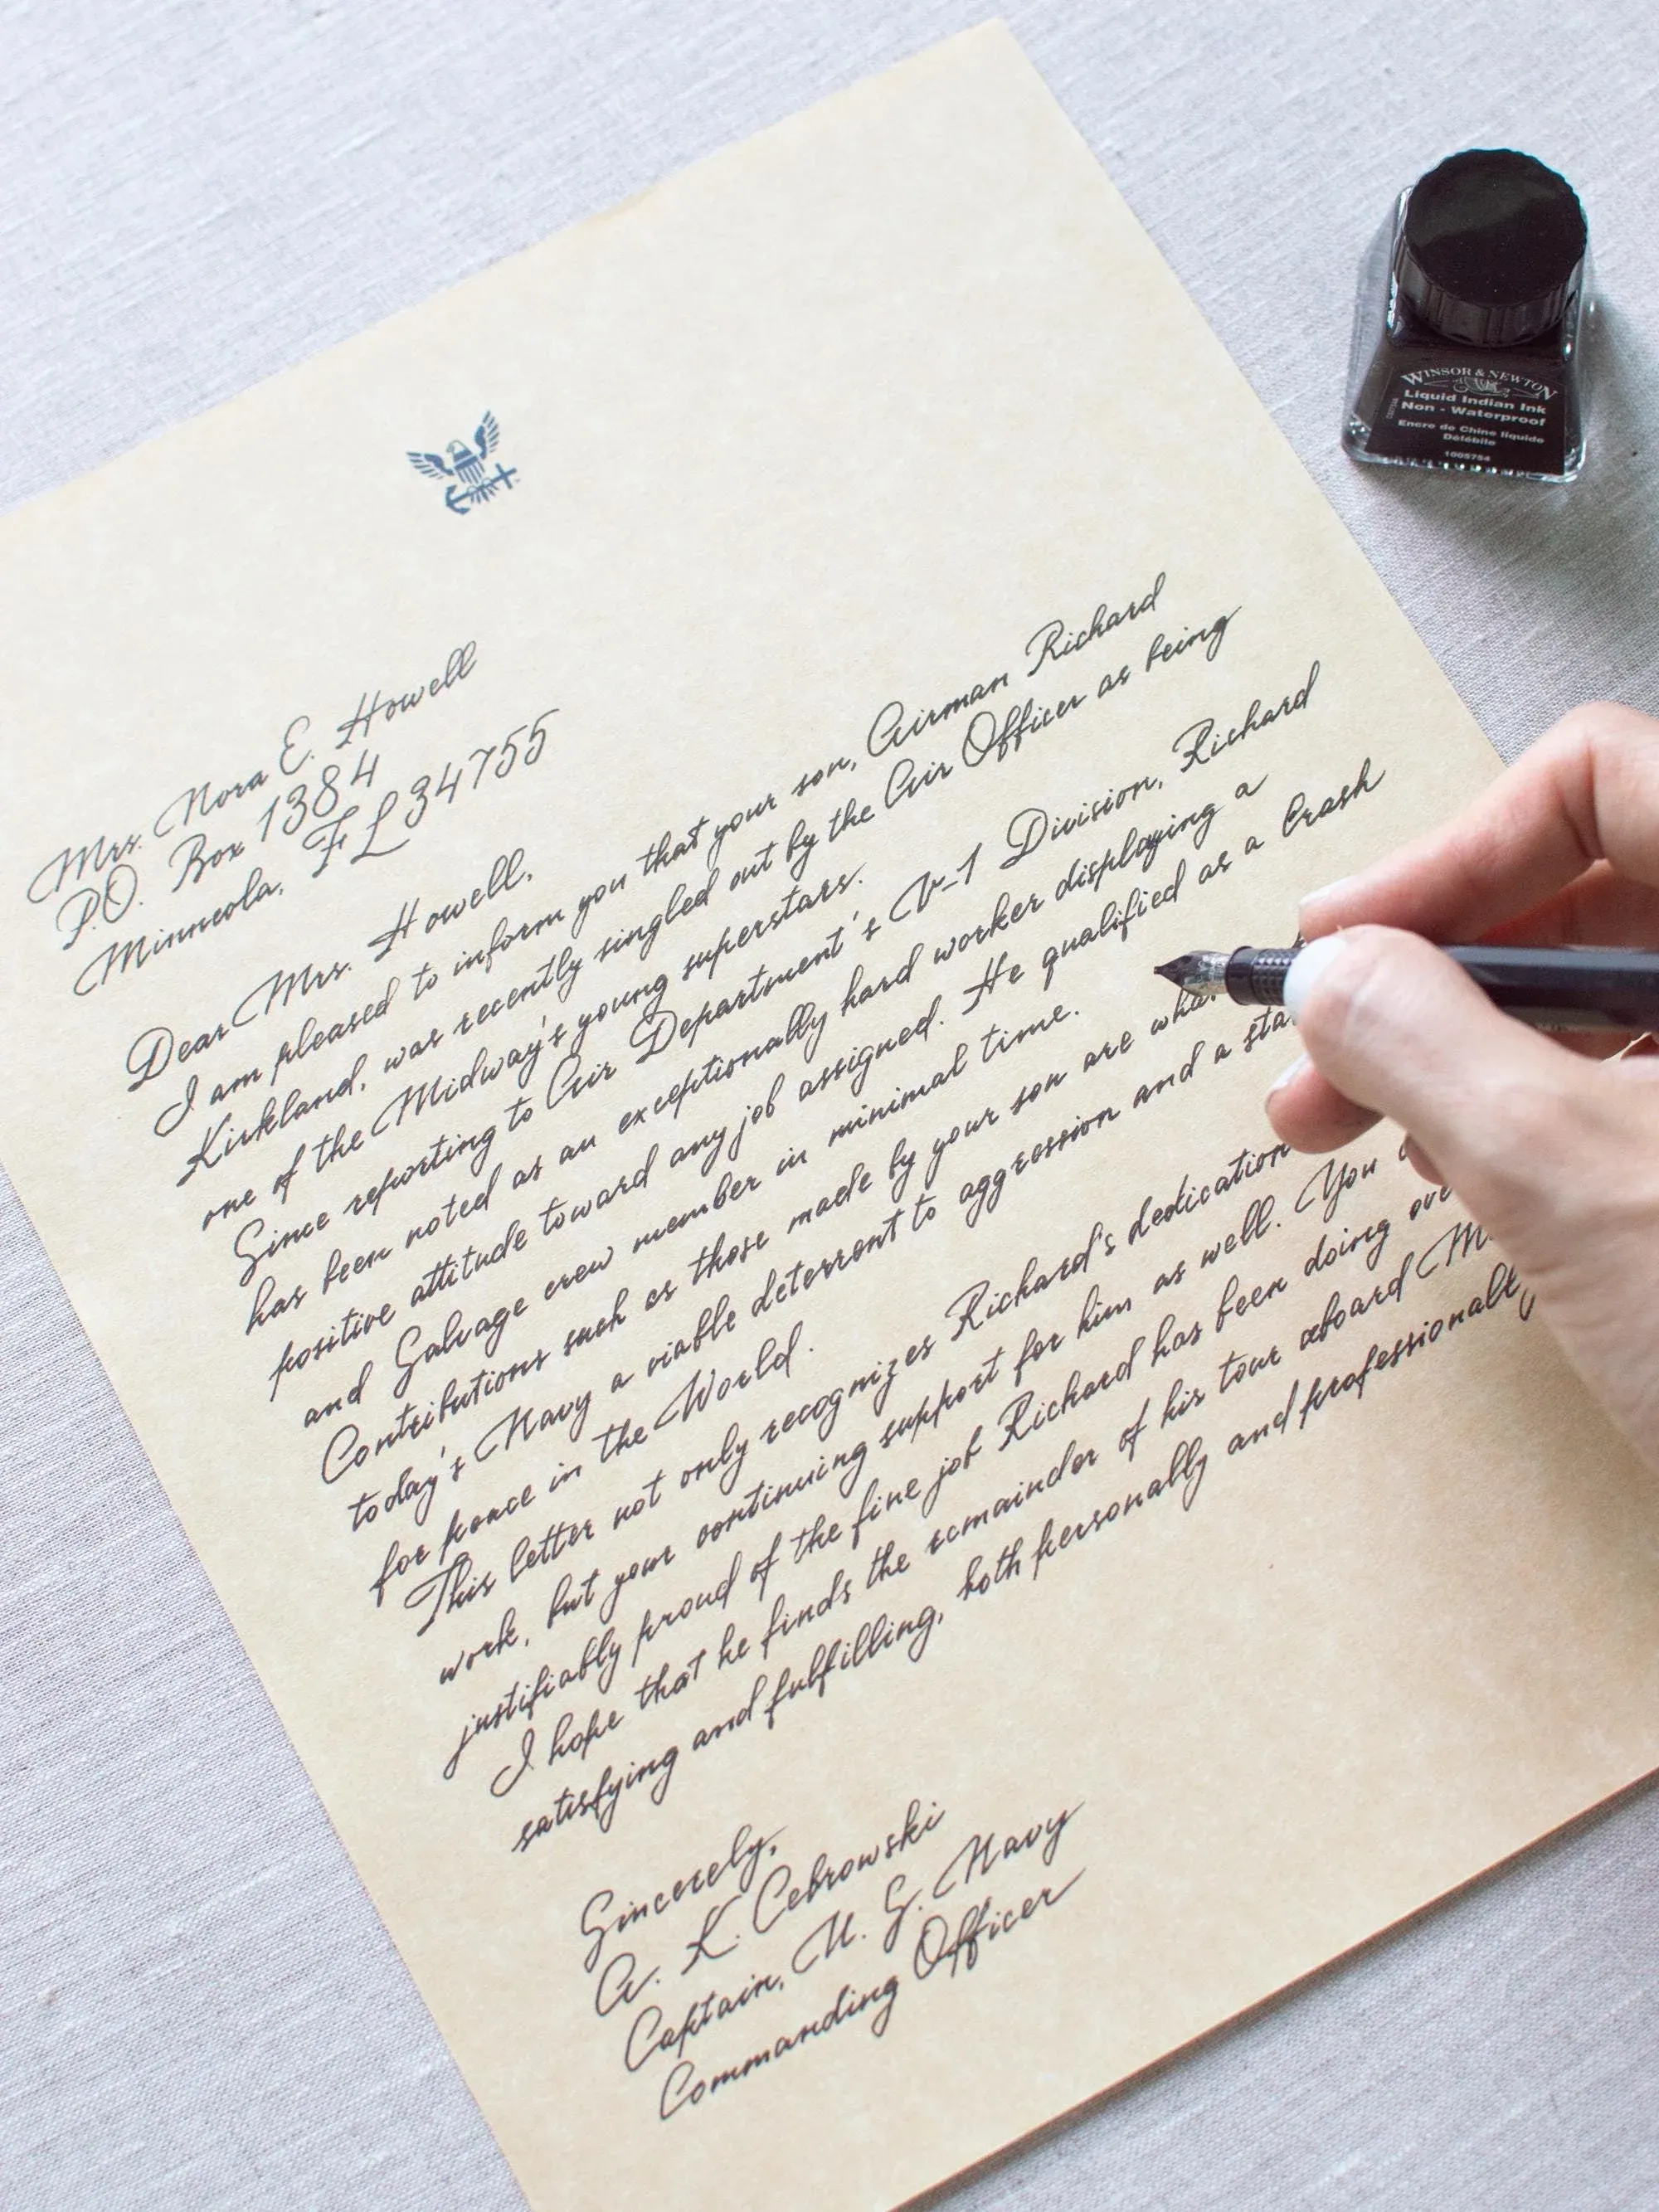 Mrs. Nora E. Howell
P.O. Box 1384
Minneola, FL 34755
Dear Mrs. Howell,
I am pleased to inform you that your son, Airman Richard
Kirkland, was recently singled out by the Air Officer as being
one of the Midway's young superstars.
Since reporting to Air Department's V-1 Division, Richard
has been noted as an exceptionally hard worker displaying a
positive attitude toward any job assigned. He qualified as a Crash
and Salvage crew member in minimal time.
Contributions such as those made by your son are
today's Navy a viable deterrent to aggression and a
for peace in the World.
This letter not only recognizes Richard's dedication
work, but your continuing support for him as well. You
justifiably proud of the fine job Richard has been doing
I hope that he finds the remainder of his tour aboard
satisfying and fulfilling, both personally and professionally
Sincerely,
A. K. Cebrowski
Captain, U. S. Navy
Commanding Officer
WINSOR & NEWTON
Liquid Indian Ink
Non - Waterproof
Encre de Chine liquide
Délébile
1005754